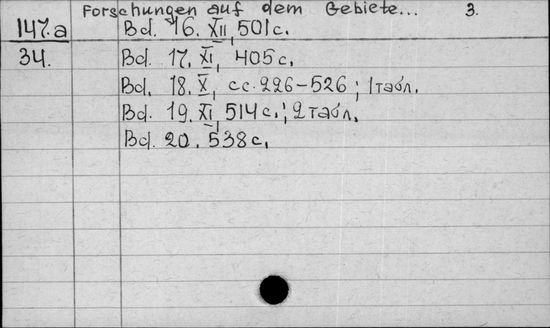 Forschungen auf dem Gebiete... 3.
147.a Bd. 16. XII, 501 с.
34. Bd. 17. XI, 405 с.
Bd. 18. X, сс. 226-526 ; 1 табл.
Bd. 19. XI, 514 с. ; 2 табл.
Bd. 20. 538 с.